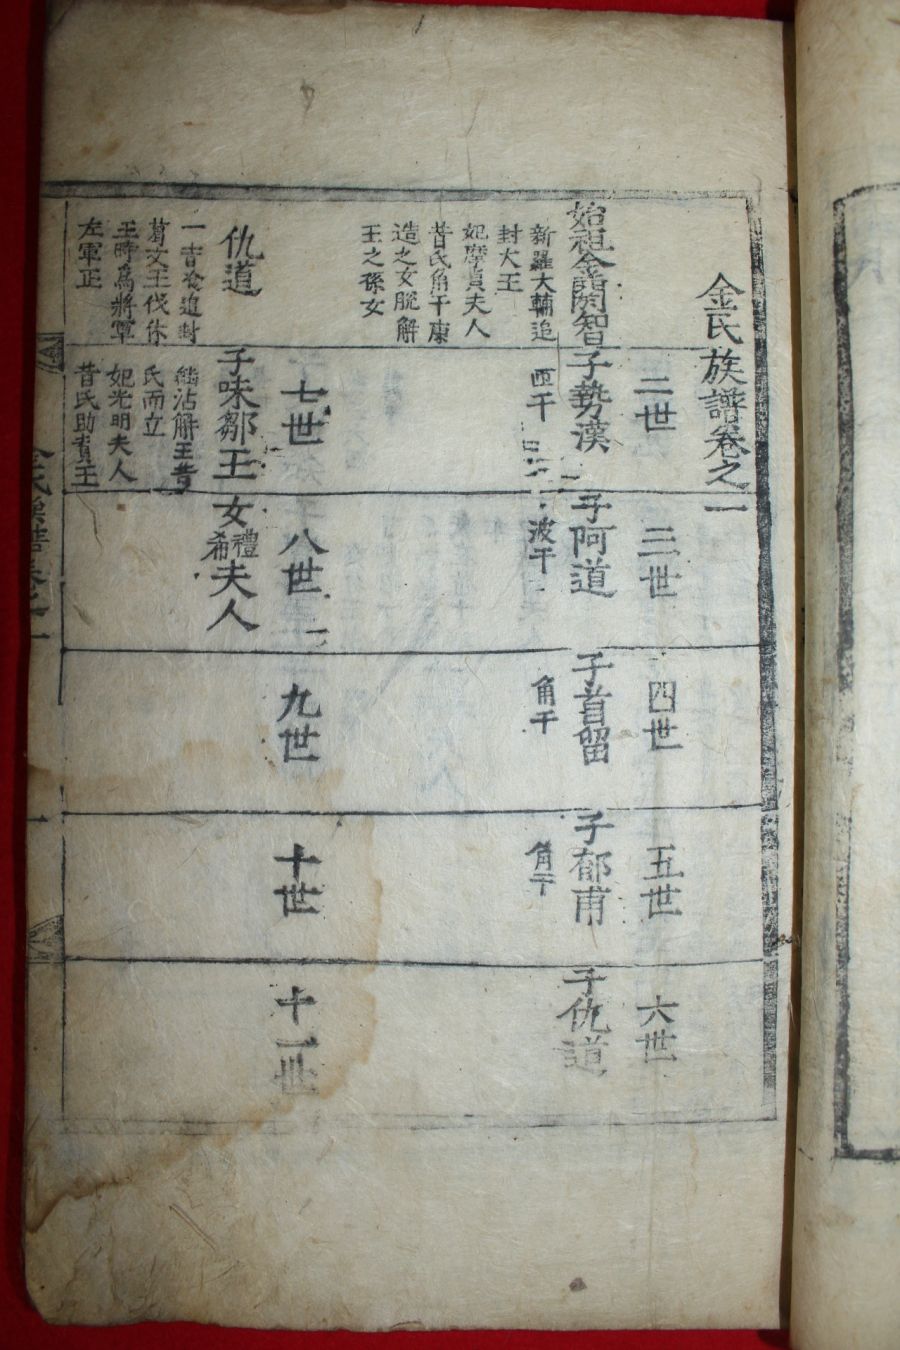 金氏族譜卷之一
始祖金閼智
新羅大輔追
封大王
妃摩貞夫人
昔氏角干康
造之女脫解
王之孫女
二世
子勢漢
三世
子阿道
波干
四世
子首留
角干
五世
子郁甫
角干
六世
子仇道
仇道
一書追封
葛文王伐休
王時爲將軍
左軍正
七世
子味鄒王
繼沾解王昔
氏而立
妃光明夫人
昔氏助賁王
八世
女禮希夫人
九世
十世
十一世